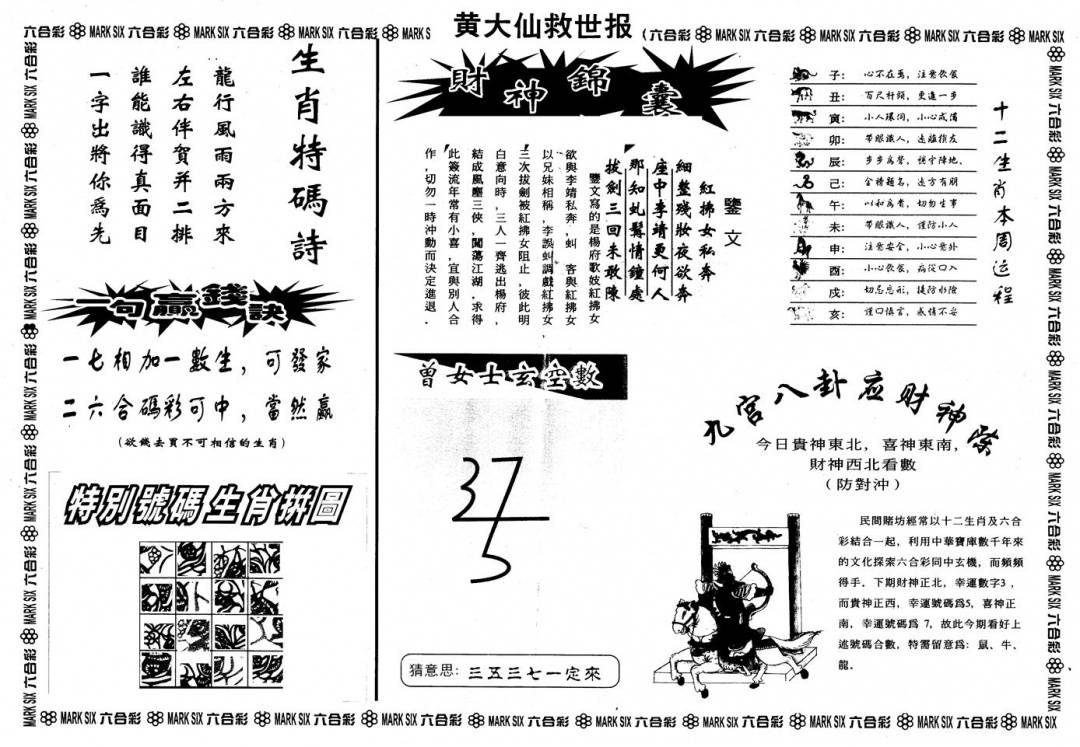 黄大仙救世报
六合彩 MARK SIX 六合彩 MARK SIX 六合彩 MARK SIX 六合彩 MARK S
(六合彩 MARK SIX 六合彩 MARK SIX 六合彩 MARK SIX 六合彩 MARK SIX
生肖特碼詩
龍行風雨兩方來
左右伴賀并二排
誰能識得真面目
一字出將你為先
一句贏錢訣
一七相加一數生，可發家
二六合碼彩可中，當然贏
(欲錢去買不可相信的生肖)
特別號碼生肖拼圖
財神錦囊
鑒文
紅拂女私奔
細整殘妝夜欲奔
座中李靖更何人
那知虬髯情鐘處
拔劍三回未敢陳
鑒文寫的是楊府歌妓紅拂女
欲與李靖私奔，虬　客與紅拂女
以兄妹相稱，李誤虬調戲紅拂女
三次拔劍被紅拂女阻止，彼此明
白意向時，三人一齊逃出楊府，
結成風塵三俠，闖蕩江湖．求得
此簽流年常有小喜，宜與別人合
作，切勿一時沖動而決定進退．
曾女士玄空數
37
5
猜意思：三五三七一定來
十二生肖本周运程
子： 心不在焉，注意飲食
丑： 百尺杆頭，更進一步
寅： 小人環伺，小心戒備
卯： 帶眼識人，遠離損友
辰： 步步為營，穩守陣地、
己： 金榜題名，遠方有朋
午： 以和為貴，切勿生事
未： 帶眼識人，謹防小人
申： 注意安全，小心意外
酉： 小心飲食，病從口入
戌： 切忌忘形，提防水險
亥： 謹口慎言，感情不妥
九宮八卦应財神榮
今日貴神東北，喜神東南，
財神西北看數
（防對沖）
民間賭坊經常以十二生肖及六合
彩結合一起，利用中華寶庫數千年來
的文化探索六合彩同中玄機，而頻頻
得手．下期財神正北，幸運數字3，
而貴神正西，幸運號碼爲5，喜神正
南，幸運號碼爲 7，故此今期看好上
述號碼合數，特需留意爲：鼠、牛、
龍．
MARK SIX 六合彩 MARK SIX 六合彩 MARK SIX 六合彩 MARK SIX 六合彩 MARK SIX 六合彩 MARK SIX 六合彩 MARK SIX 六合彩 MARK SIX 六合彩 MARK SIX 六合彩 MARK SIX